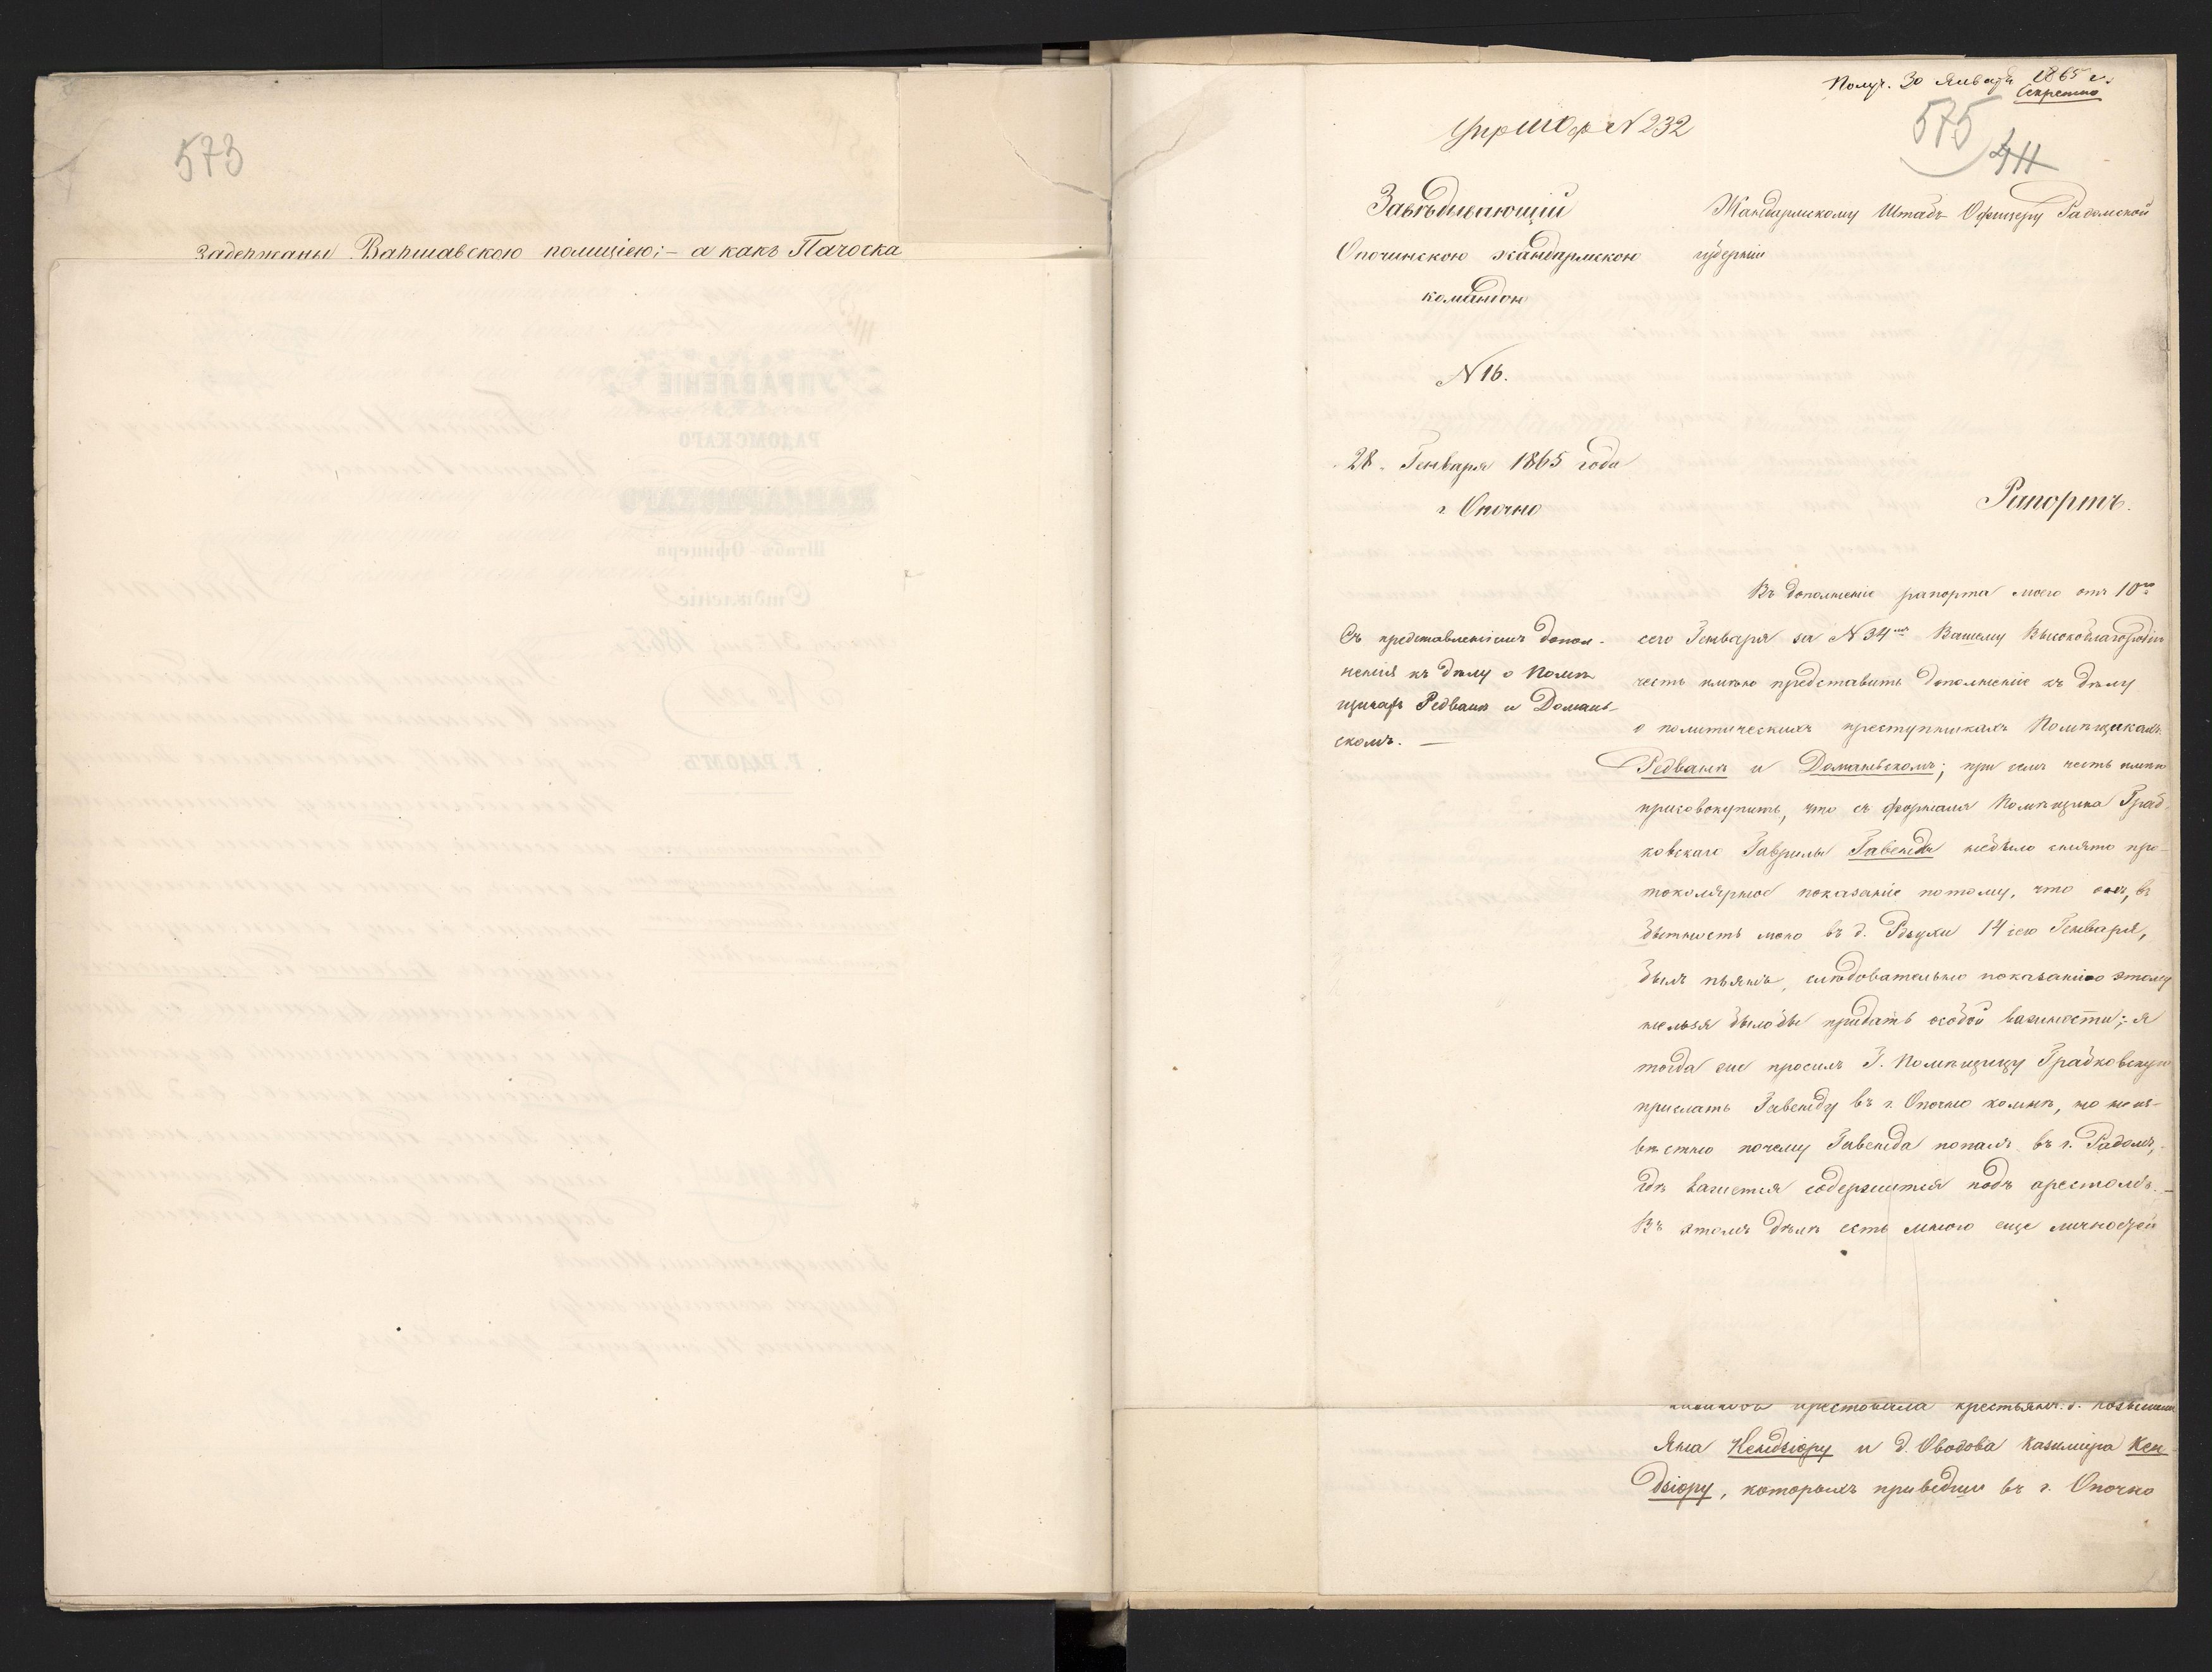 573
задержаны Варшавскою полиціею; – а какъ Пачоска
Получ. 30 Января 1865 г.
Секретно
575
411
N 232
Завѣдывающій
Опочинскою жандармскою
командою
N 16.
28. Генваря 1865 года
г. Опочно
Жандармскому Штабъ Офицеру Радомской
губерніи
Рапортъ.
Съ представленіемъ допол-
ненія къ дѣлу о Помѣ-
щикахъ Редванѣ и Домань-
скомъ. —
Въ дополненіе рапорта моего отъ 10го
сего Генваря за N 34мъ Вашему Высокоблагородію
честь имѣю представить дополненіе къ дѣлу
о политическихъ преступникахъ Помѣщикахъ
Редванѣ и Доманьскомъ; при семъ честь имѣю
присовокупить, что съ форналя Помѣщика Граб-
ковскаго Гаврилы Гавенды небыло снято про-
токолярное показаніе потому, что онъ, въ
бытность мою въ д. 14 сего Генваря,
былъ пьянъ, слѣдовательно показанію этому
нельзя былобы придать особой важности; – я
тогда же просилъ Г. Помѣщицу Грабковскую
прислать Гавенду въ г. Опочно ко мнѣ, но неиз-
вѣстно почему Гавенда попалъ въ г. Радомъ,
гдѣ кажется содержится подъ арестомъ. –
Въ этомъ дѣлѣ есть много еще личностей
арестовала крестьянъ: д.
Яна Кендзіору и д. Оводова Казимира Кен-
дзіору, которыхъ приведши въ г. Опочно